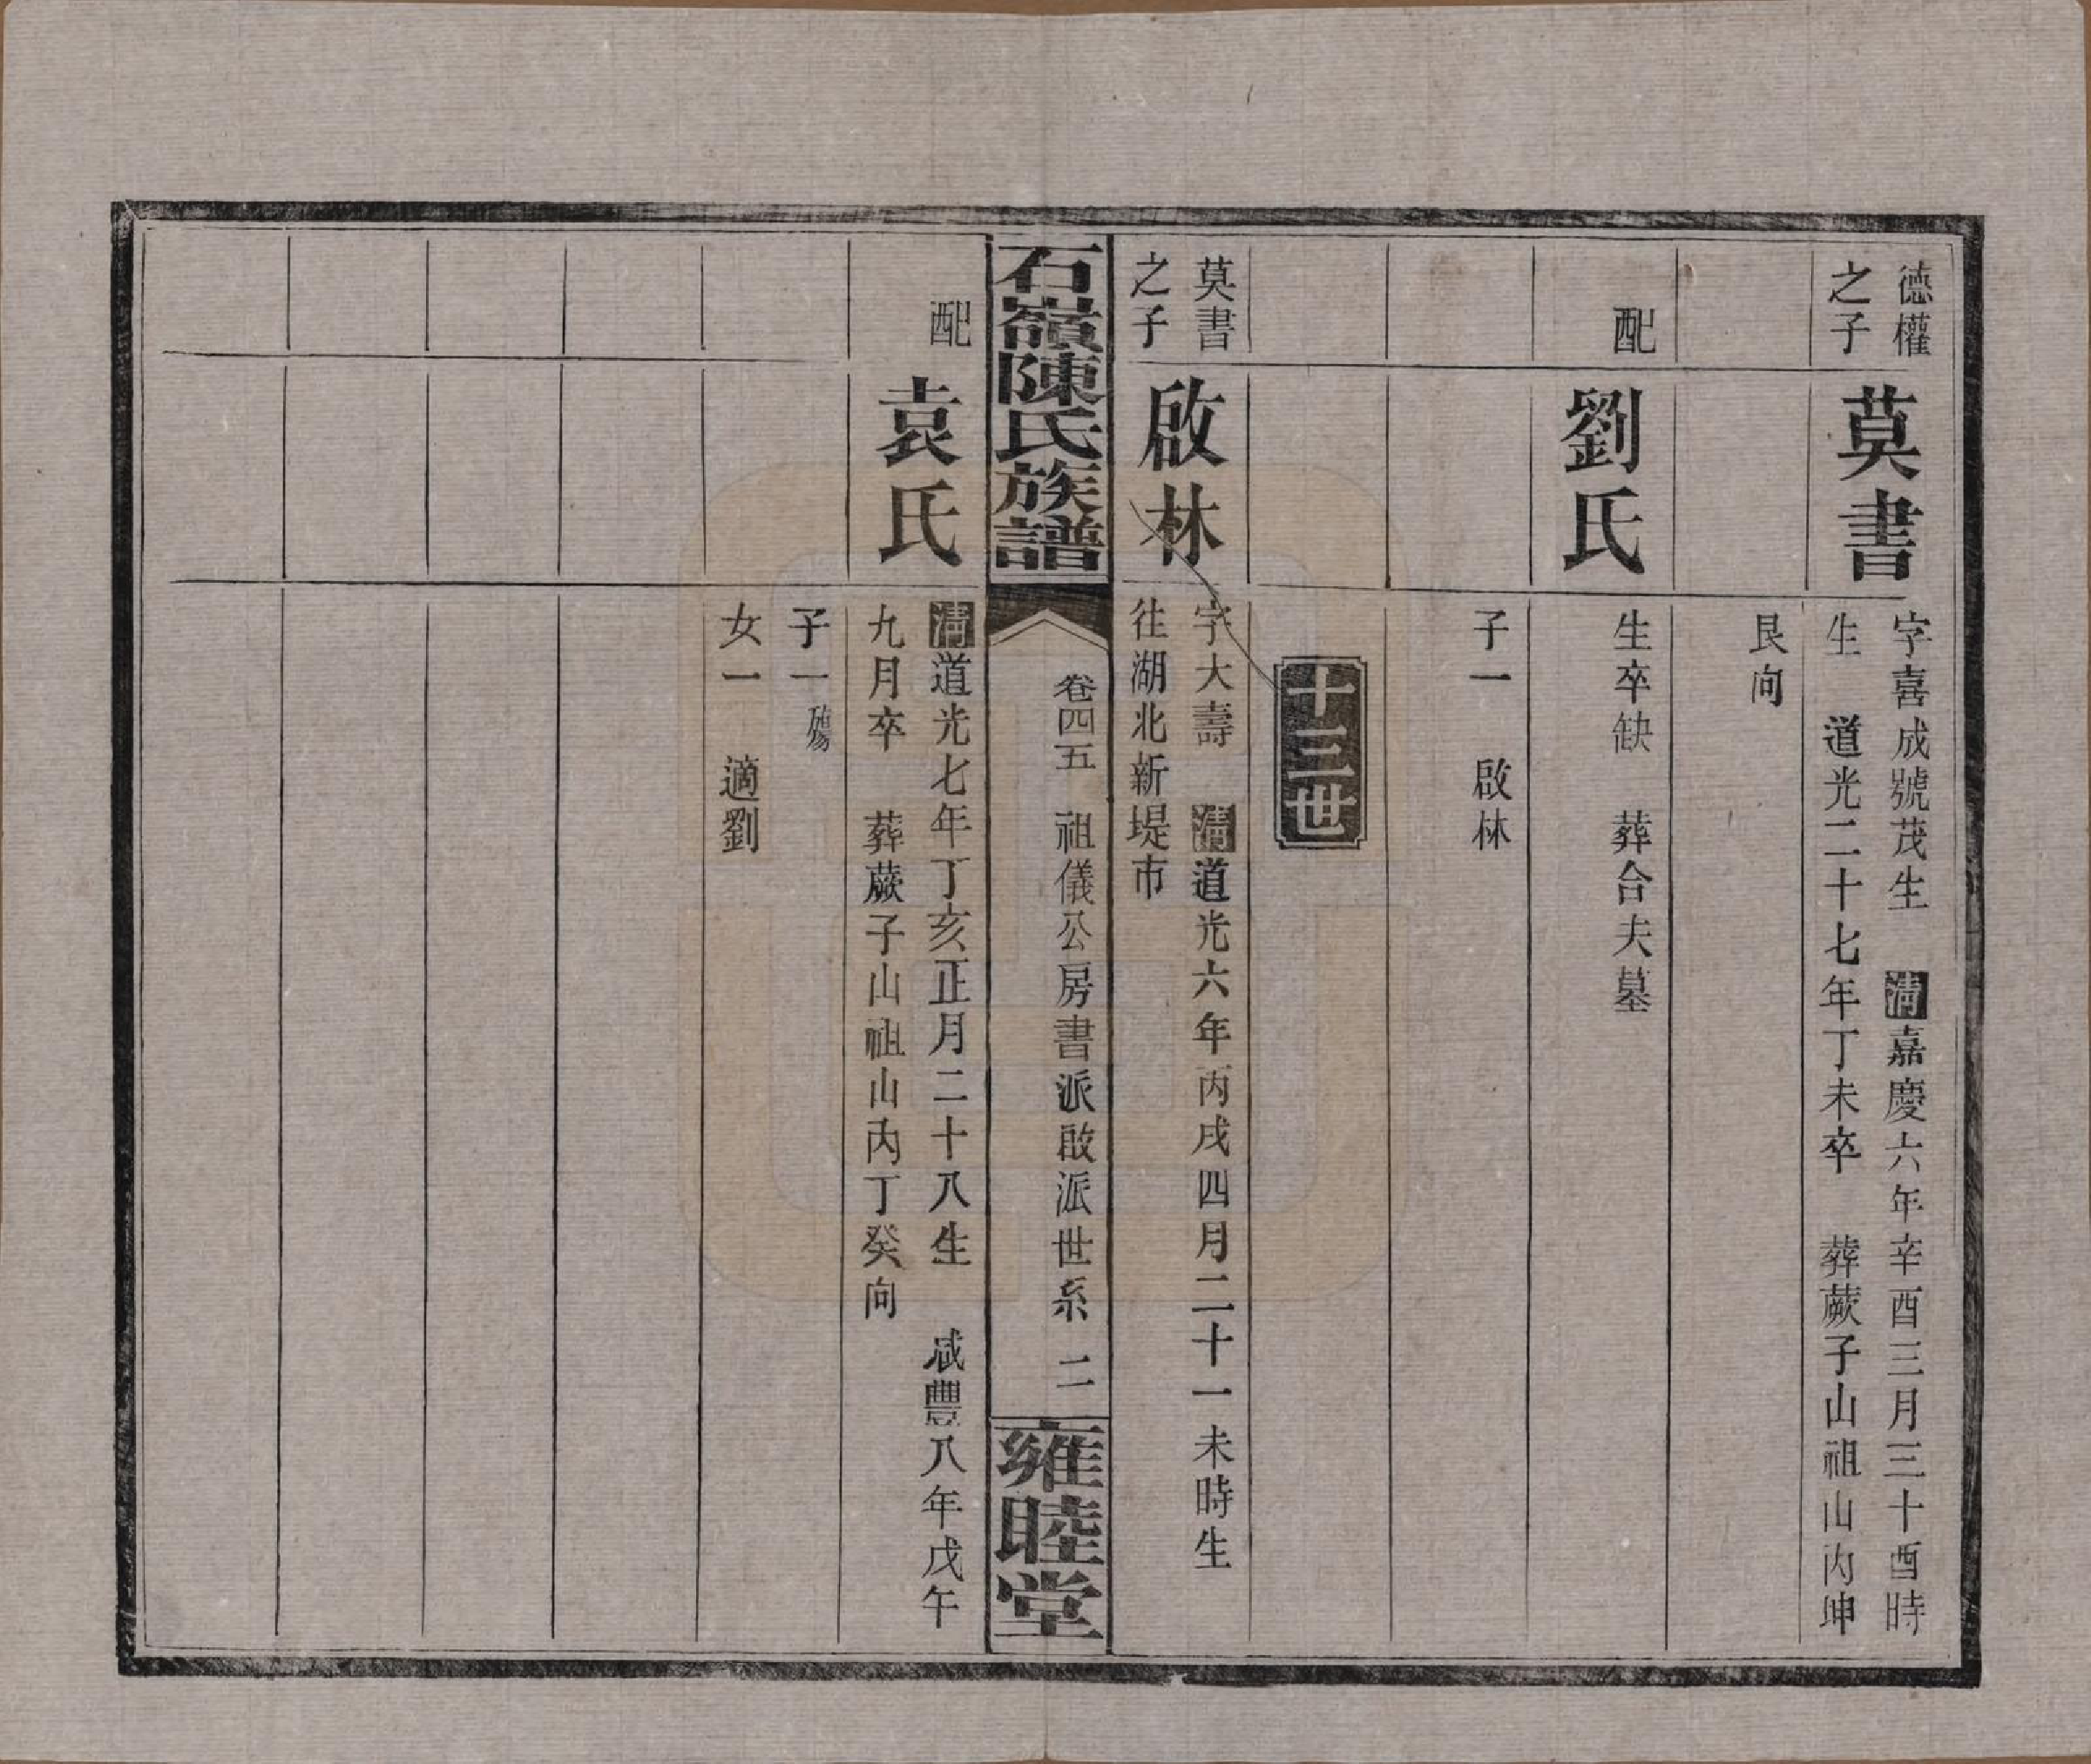 德權
之子
莫書
字喜成號茂生　清嘉慶六年辛酉三月三十酉時
生　道光二十七年丁未卒　葬蕨子山祖山內坤
艮向
配
劉氏
生卒缺　葬合夫墓
子一　啟林
十三世
莫書
之子
啟林
字大壽　清道光六年丙戌四月二十一未時生
往湖北新堤市
石嶺陳氏族譜
卷四五　祖儀公房書派啟派世系　二
雍睦堂
配
袁氏
清道光七年丁亥正月二十八生　咸豐八年戊午
九月卒　葬蕨子山祖山內丁癸向
子一 殤
女一　適劉